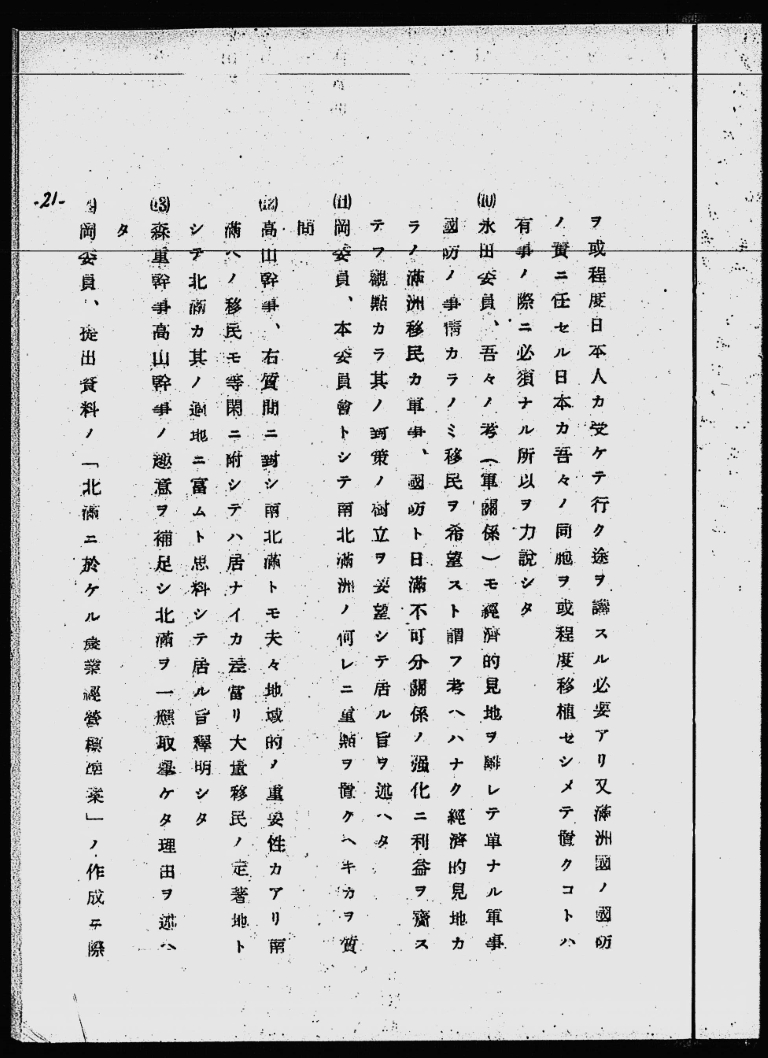 ヲ或程度日本人カ受ケテ行ク途ヲ講スル必要アリ又滿洲國ノ國防
ノ責ニ任セル日本カ吾々ノ同胞ヲ或程度移植セシメテ置クコトハ
有事ノ際ニ必須ナル所以ヲ力說シタ
(10)永田委員、吾々ノ考（軍關係）モ經濟的見地ヲ離レテ單ナル軍事
國防ノ事情カラノミ移民ヲ希望スト謂フ考ヘハナク經濟的見地カ
ラノ滿洲移民カ軍事、國防ト日滿不可分關係ノ强化ニ利益ヲ齎ス
テフ觀點カラ其ノ對策ノ樹立ヲ要望シテ居ル旨ヲ述ヘタ
(11)岡委員、本委員會トシテ南北滿洲ノ何レニ重點ヲ置クヘキカヲ質
問
(12)高山幹事、右質問ニ對シ南北滿トモ夫々地域的ノ重要性カアリ南
滿ヘノ移民モ等閑ニ附シテハ居ナイカ差當リ大量移民ノ定著地ト
シテ北滿カ其ノ適地ニ富ムト思料シテ居ル旨釋明シタ
(13)森重幹事高山幹事ノ趣意ヲ補足シ北滿ヲ一應取擧ケタ理由ヲ述ヘ
タ
岡委員、提出資料ノ「北滿ニ於ケル農業經營標準案」ノ作成ニ際
-21-